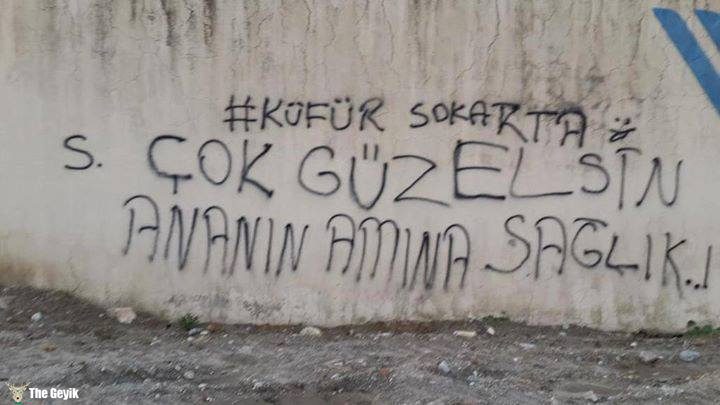 #KÜFÜR SOKARTA
S. ÇOK GÜZELSİN
ANANIN AMINA SAĞLIK..!
The Geyik